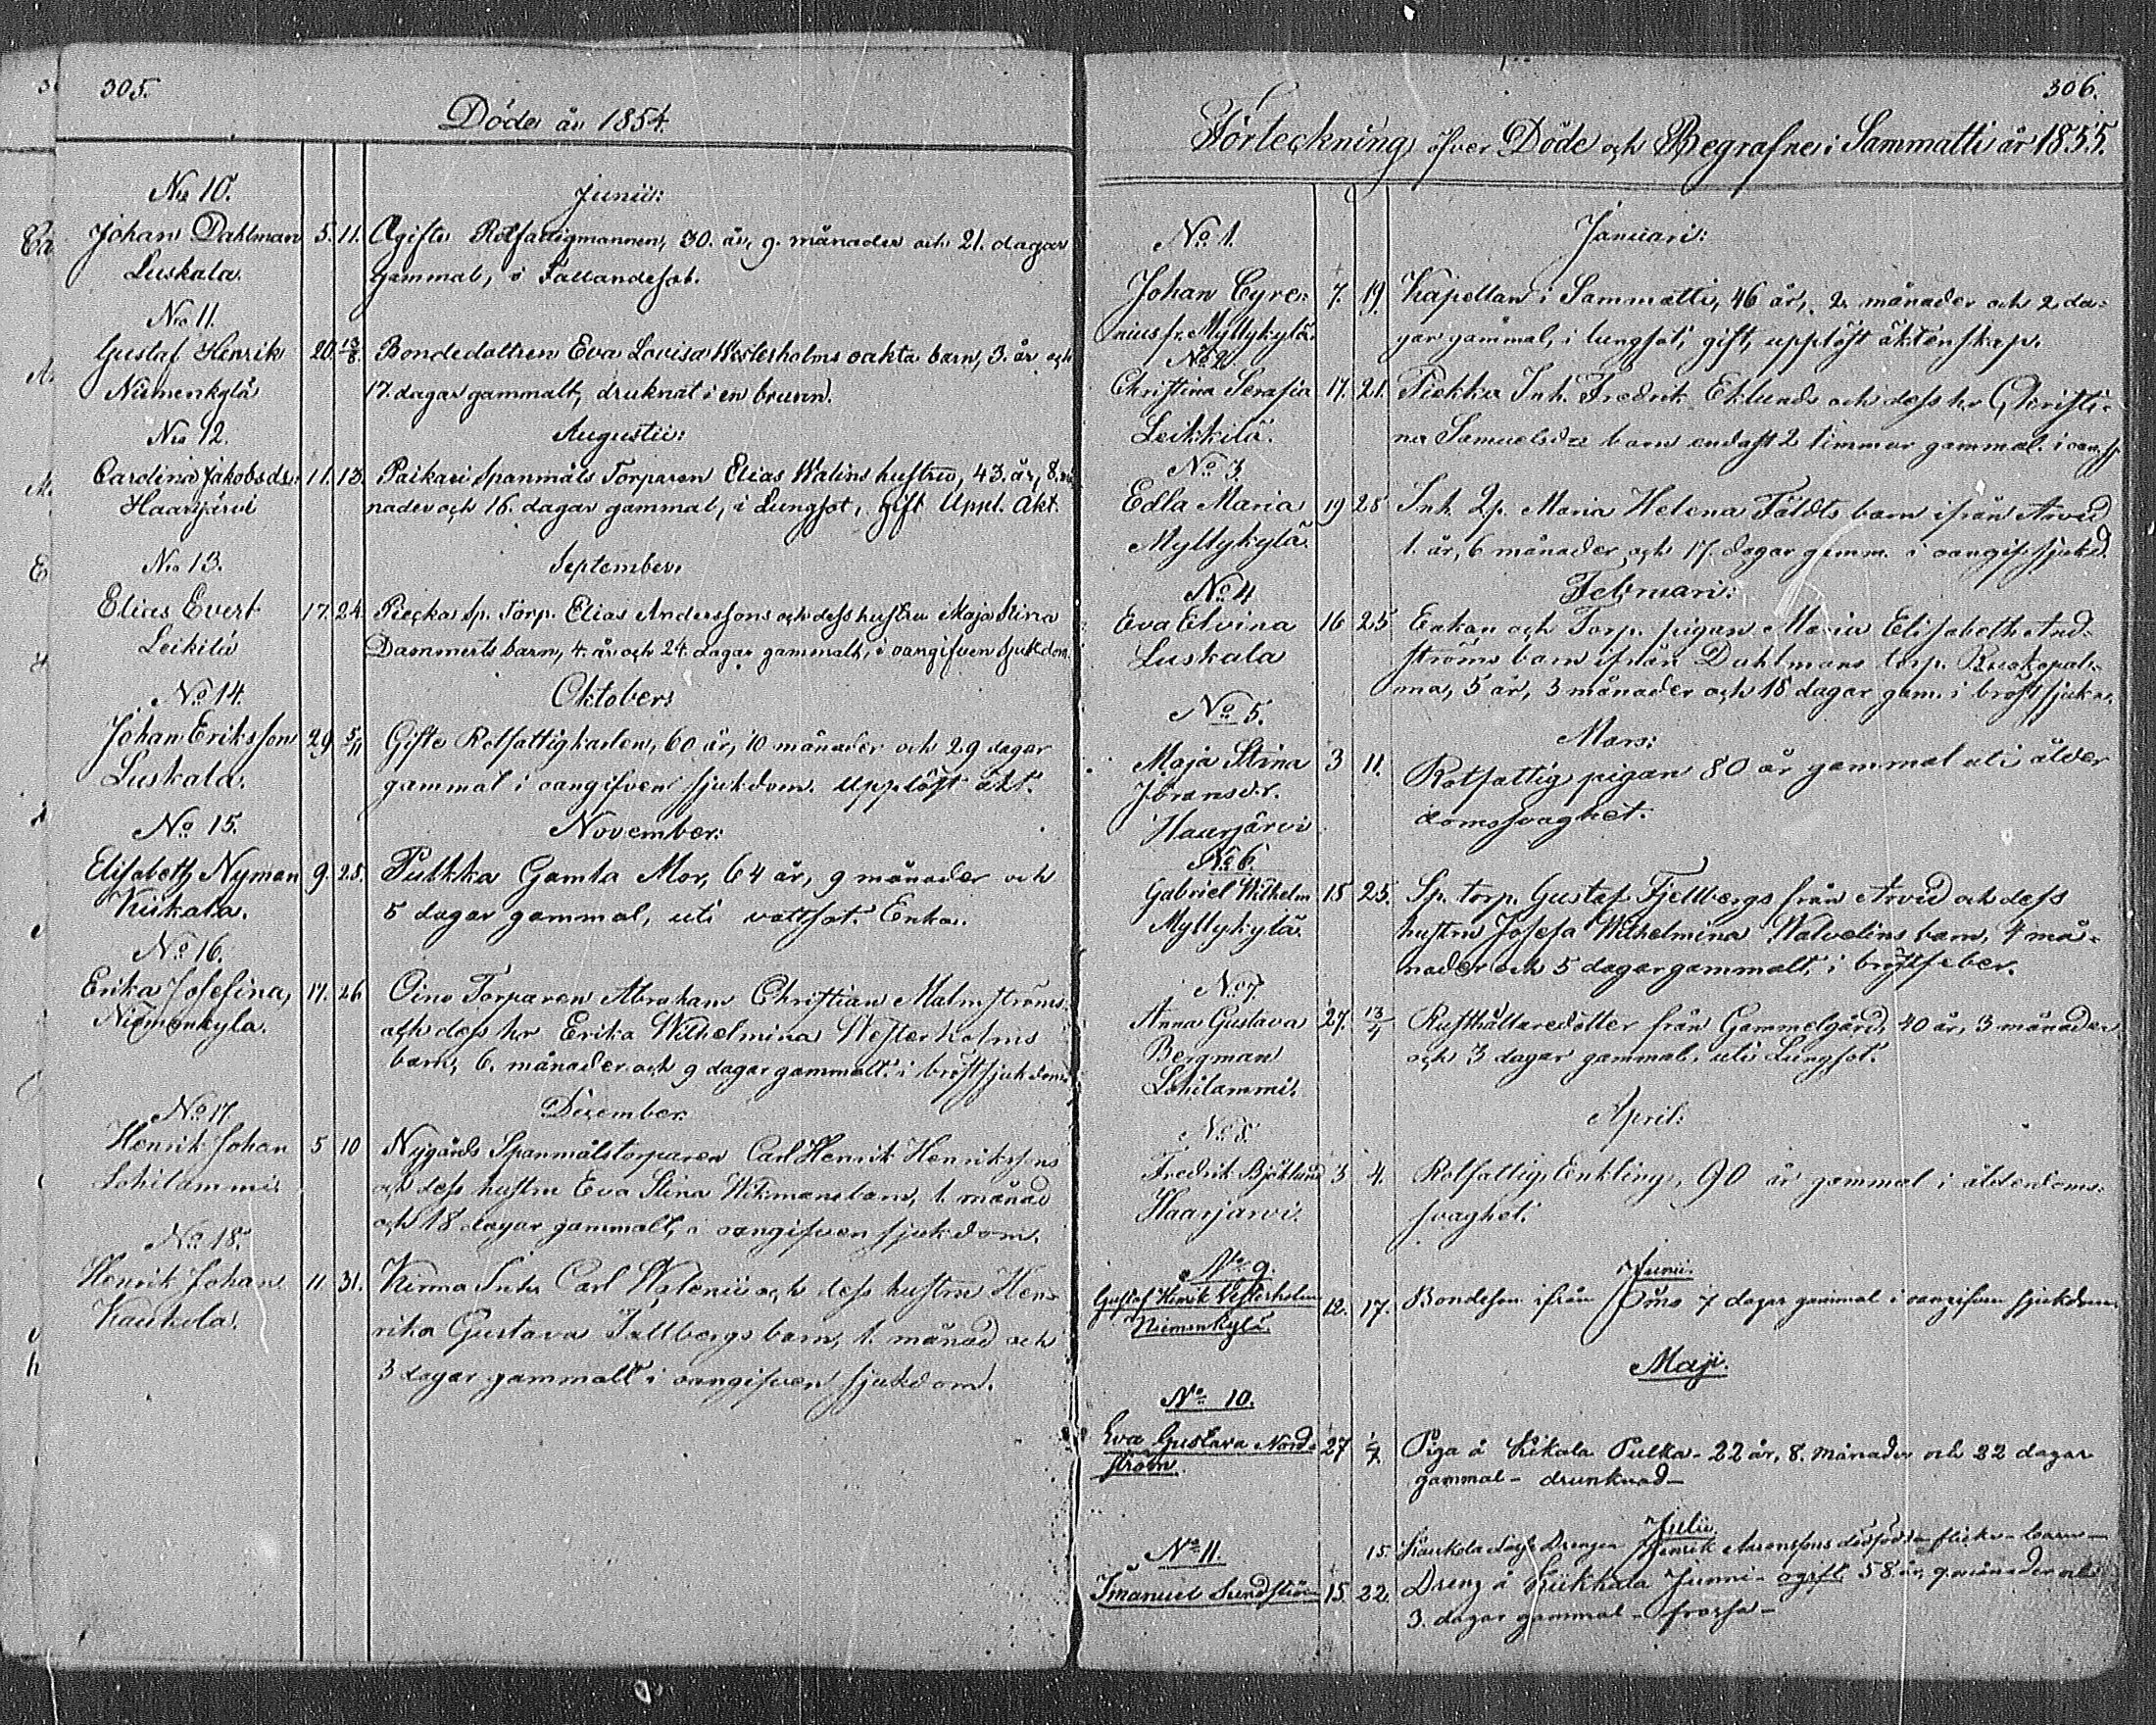 305.
Döde år 1854.
No 10.
Junii:
Johan Dahlman 5. 11. Ogifte Rotfattigmannen, 30. år, 9. månader och 21. dagar
Luskala. gammal, i Fallandesot.
No 11.
Gustaf Henrik 20. 13/8. Bondedottren Eva Lovisa Westerholms oäkta barn, 3. år och
Niemenkylä 17. dagar gammalt, druknat i en brunn.
No 12.
Augustii:
Carolina Jakobsdr. 11. 13. Paikari Spanmåls Torparen Elias Walins hustru, 43. år, 8. må
Haarijärvi nader och 16. dagar gammal, i Lungsot, gift Uppl. Äkt.
No 13.
September.
Elias Evert 17. 24. Piecka Sp. Torp. Elias Anderssons och dess hustru Maja Stina
Leikilä Dammerts barn, 4. år och 24. dagar gammalt, i oangifven sjukdom.
No 14.
Oktober:
Johan Eriksson 29. 5/11 Gifte Rotfattigkarlen, 60 år, 10 månader och 29 dagar
Luskala. gammal i oangifven sjukdom. Upplöst äkt.
No 15.
November:
Elisabeth Nyman 9. 28. Pulkka Gamla Mor, 64 år, 9 månader och
Kiikala. 5 dagar gammal, uti vattsot. Enka.
No 16.
Erika Josefina, 17. 26 Oino Torparen Abraham Christian Malmströms
Niemenkyla. och dess hr Erika Wilhelmina Westerholms
barn, 6. månader och 9 dagar gammalt, i bröstsjukdom
Dizember:
No 17
Henrik Johan 5 10 Nygårds Spanmålstorparen Carl Henrik Henrikssons
Lohilammi och dess hustru Eva Stina Wikmans barn, 1. månad
och 18 dagar gammalt, i oangifven sjukdom.
No 18.
Henrik Johan 11. 31. Kirma Carl Walenii och dess hustru Hen-
Kaukola. rika Gustava Fallbergs barn, 1. månad och
3 dagar gammalt i oangifven sjukdom.
306.
Förteckning öfver Döde och Begrafne i Sammatti år 1855.
Januari:
No 1.
Johan Cyre- 7. 19. Kapellan i Sammatti, 46 år, 2. månader och 2 da-
nius fr. Myllykylä. gar gammal, i lungsot, gift, upplöst äktenskap.
No 2.
Christina Serafia 17. 21. Piekka Inh. Fredrik Eklunds och dess hr Christi-
Leikkilä. na Samuelsdrs barn endast 2 timmar gammal.
No 3.
Edla Maria 19 28 Inh. Maria Helena Fäldts barn ifrån Arvid
Myllykylä. 1. år, 6 månader och 17. dagar gamm. i oangif. sjukd.
Februari:
No 4
Eva Elvina 16 25 Enkan och Torp. pigan Maria Elisabeth And-
Luskala ströms barn ifrån Dahlmans torp.
ma, 5 år, 3 månader och 18 dagar gam. i bröstsjuka.
No 5.
Mars:
Maja Stina 3 11. Rotfattig pigan 80 år gammal uti ålder
Jöransdr. domssvaghet.
Haarjärvi
No 6.
Gabriel Wilhelm 18 25. Sp. torp. Gustaf Fjellbergs från Arvid och dess
Myllykylä. hustru Josefa Wilhelmina Walvelins barn, 4 må-
nader och 5 dagar gammalt, i bröstfeber.
No 7.
Anna Gustava 27. 13/4 Rusthållaredotter från Gammelgård, 40 år, 3 månader
Bergman och 3 dagar gammal, uti Lungsot.
Lohilammi.
April:
No 8.
Fredrik Björklund 3 4. Rotfattig Enkling, 90 år gammal i ålderdoms-
Haarjärvi. svaghet.
Junii.
No 9.
Gustaf Henrik Vesterholm 12. 17. Bondeson ifrån 7 dagar gammal i oangifven sjukdom
Niemenkylä.
Maji.
No 10.
Eva Gustava Nord- 27 1/7 Piga å Kikala Pulka - 22 år, 8. månader och 22 dagar
ström. gammal - drunknad -
Julii
15. Kaukola Drengen Henrik Aronssons dödfödda flicke-barn -
No 11.
Imanuel Sundström 15. 22. Dreng å Kiikkala Junni - ogift 58 år, 9 månader och
3. dagar gammal - frossa -